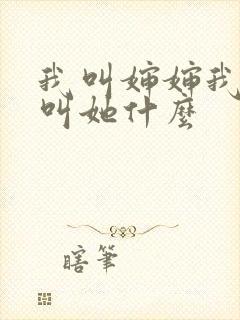 我叫婶婶我
叫她什麽
瞎筆